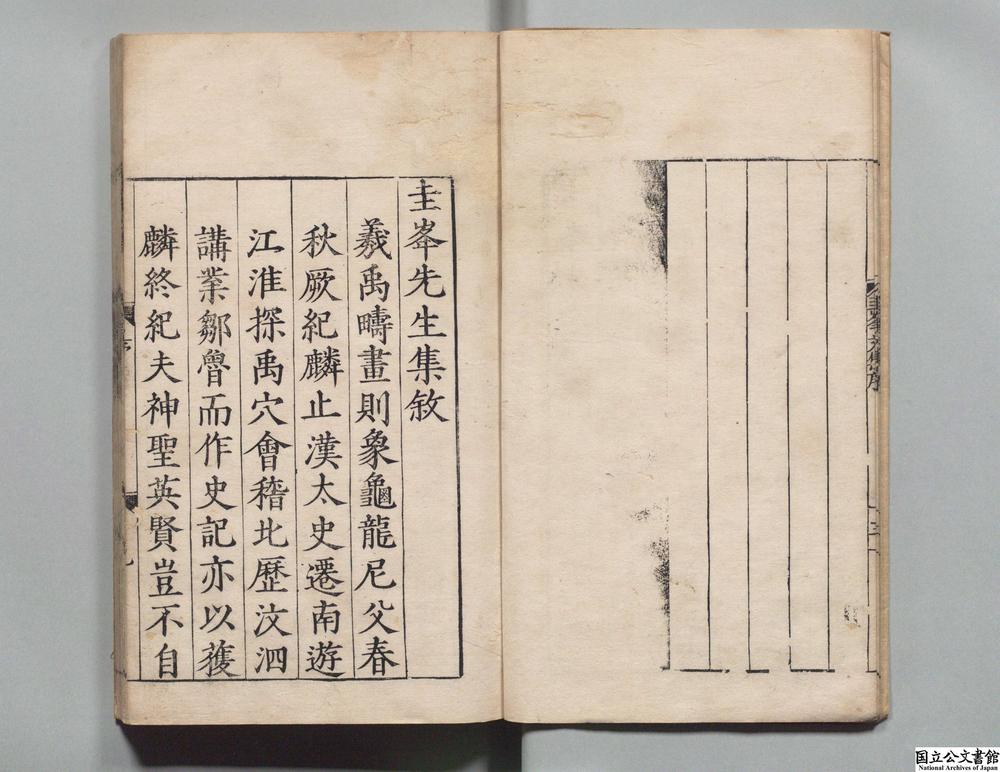 圭峯先生集敘
羲禹疇畫則象龜龍尼父春
秋厥紀麟止漢太史遷南遊
江淮探禹穴會稽北歷汶泗
講業鄒魯而作史記亦以獲
麟終紀夫神聖英賢豈不自
国立公文書館
National Archives of Japan